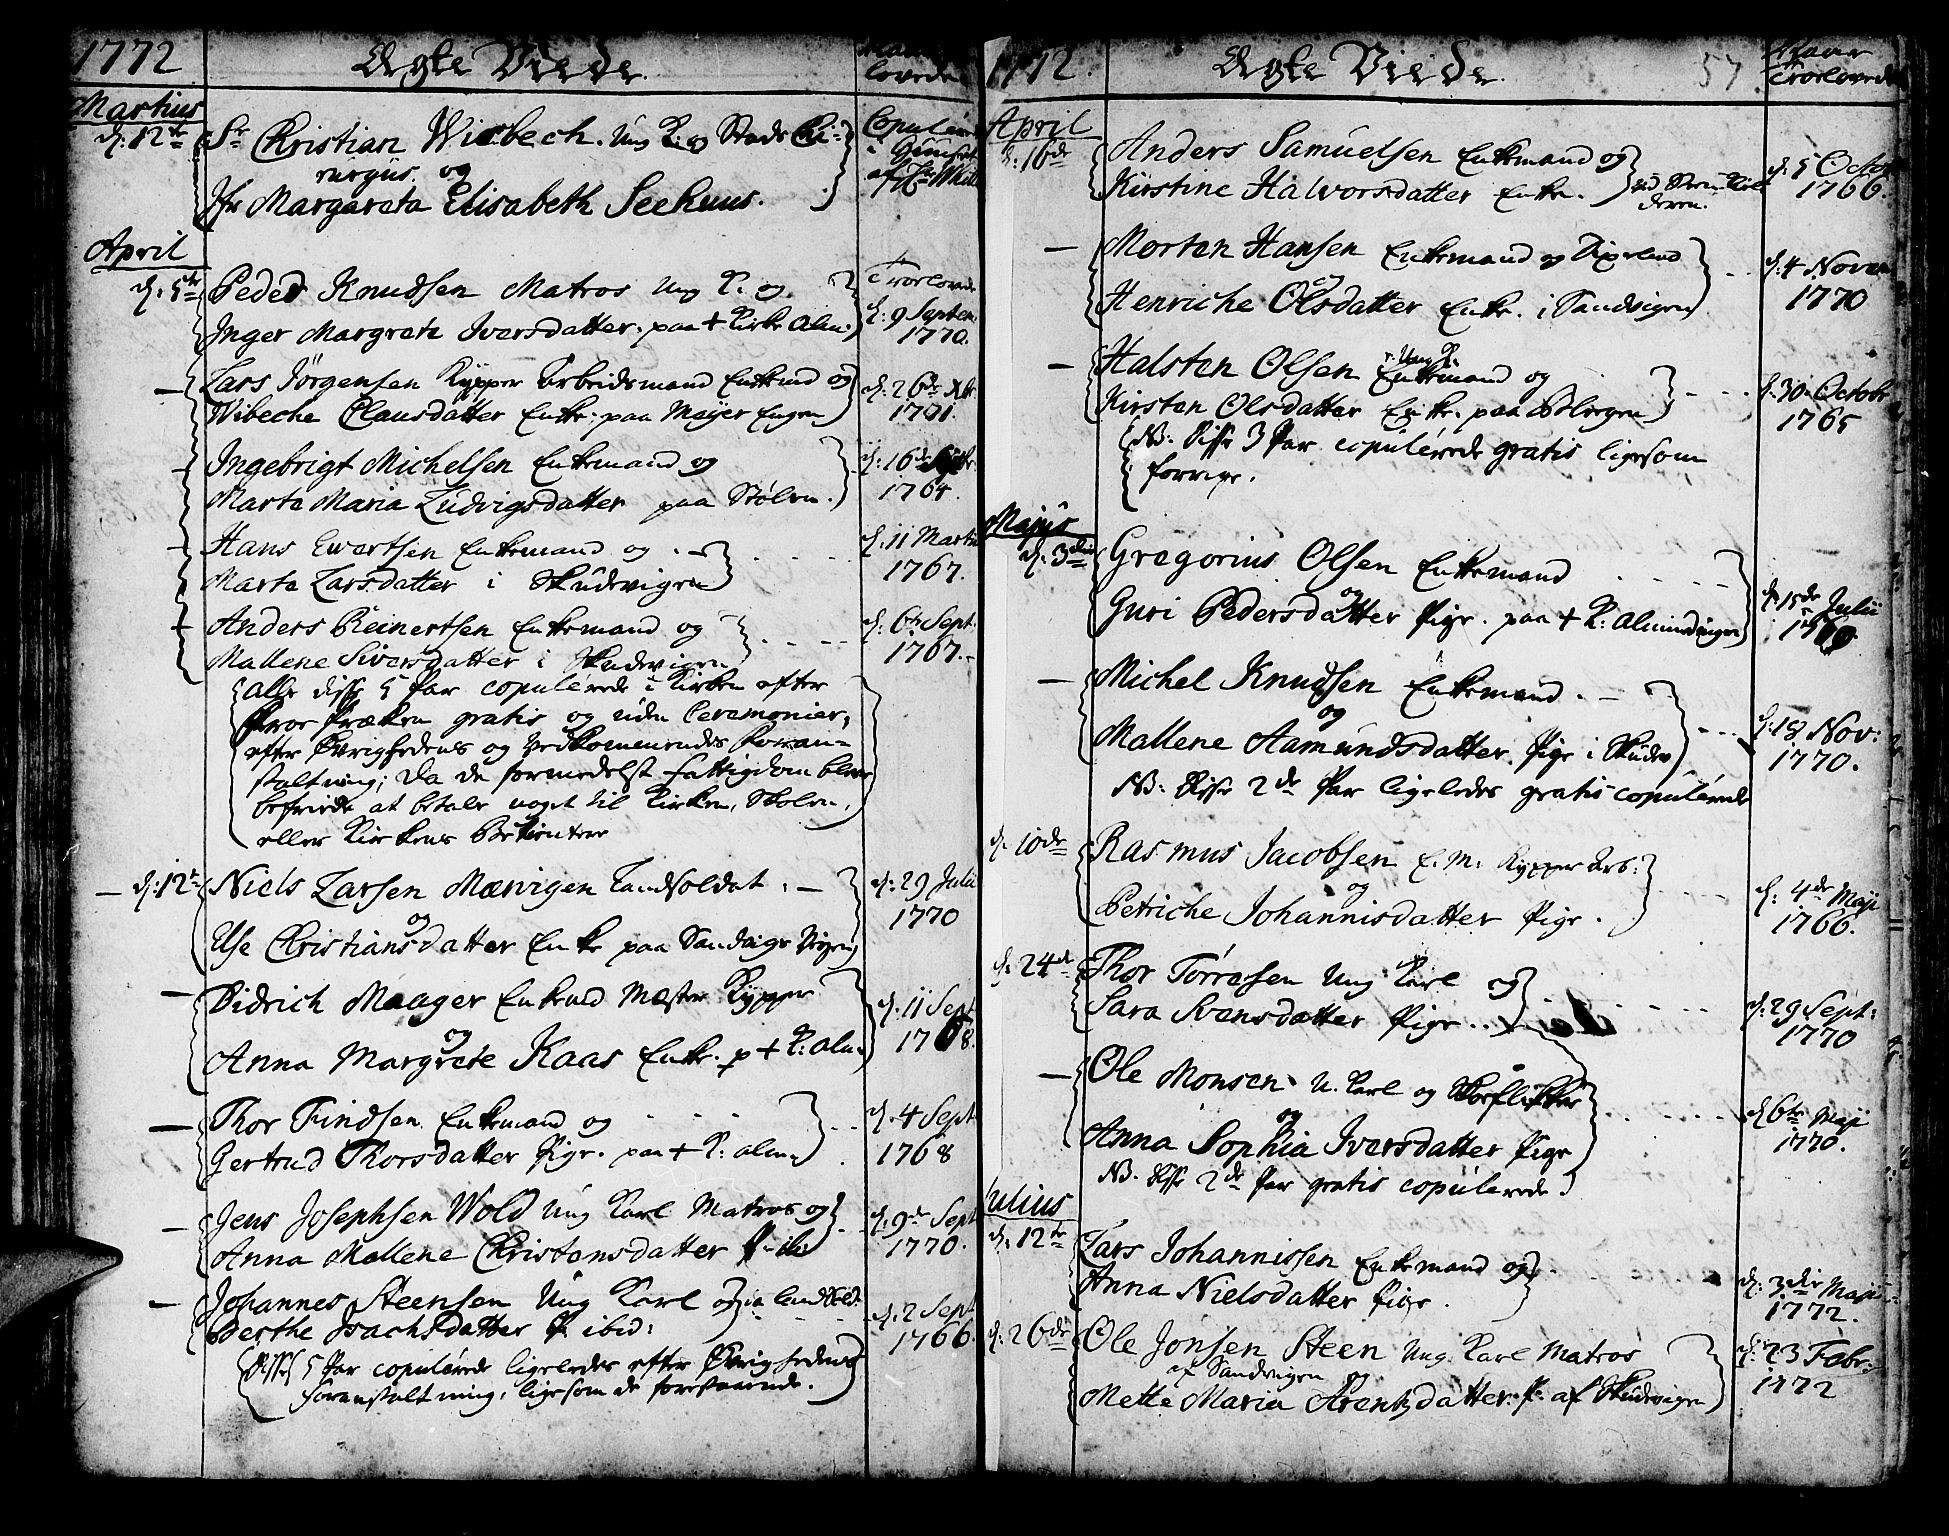 1772 Ægte Viede.
loveden
Martius
d: 12te Sr Christian Wiebech. Ung K: og Stads Chi-
rurgus. og
Jfr Margareta Elisabeth Seehuus.
Copuleret
i
af Hr
April
Trorlovede
d: 5te Peder Knudsen Matros Ung K. og
Inger Margrete Iversdatter. paa + Kirke Alm:
d: 9 Septem:
1770.
— Lars Jörgensen Kypper Arbeidsmand Enkemd og
Wibeche Clausdatter Enke. paa Meyer Engen
d: 26de
1771.
— Ingebrigt Michelsen Enkemand og
Marte Maria Ludvigsdatter paa Stølen.
d: 16de
1764.
— Hans Ewertsen Enkemand og . —
Marte Larsdatter i Skudevigen
d: 11 Martii
1767.
— Anders Reinertsen Enkemand og
Mallene Siversdatter i Skudevigen
d: 6te Sept.
1767.
alle disse 5 Par copulerede i Kirken efter
Froe Præken gratis og uden Ceremonier,
efter Øvrighedens og Vedkommendes Foran-
staltning; da de formedelst fattigdom bleve
befriede at betale noget til Kirken, Skolen,
eller Kirkens Betientere
— d: 12te Niels Larsen Mævigen Landsoldat. —
og
Else Christiansdatter Enke paa Sandvigs Veyen
d: 29 Julii
1770
— Didrich Maager Enkemd Mester Kypper
og
Anna Margrete Kaas Enke. p + K: alm:
d: 11 Sept
1768.
— Thor Findsen Enkemand og
Gertrud Thorsdatter Pige. paa + K: alm:
d: 4 Sept
1768
— Jens Josephsen Wold Ung Karl Matros og
Anna Mallene Christensdatter P. ib:
d: 9de Sept
1770.
— Johannes Steensen Ung Karl og
Berthe Isachsdatter P. ibid:
d: 2 Sept
1766.
Disse 5 Par copulerede ligeledes efter Øvrighedens
Foranstaltning, ligesom de forestaaende.
1772. Ægte Viede. 57
Trorlovede
April
d: 16de Anders Samuelsen Enkemand og
Kirstine Halvorsdatter Enke.
d: 5 Octob
1766.
— Morten Hansen Enkemand og
og
Henriche Olsdatter Enke. i Sandvigen
d: 4 Novem
1770
— Halsten Olsen Enkemand og
Ung K.
Kirsten Olsdatter Enke. paa
d: 30 Octobr
1765
NB. Disse 3 Par copulerede gratis ligesom
forrige.
Majus
d: 3die Gregorius Olsen Enkemand
og
Guri Pedersdatter Pige. paa + K: Almindingen
d: 15de Julii
— Michel Knudsen Enkemand. —
og
Mallene Aamundsdatter Pige i Skudev
d: 18 Nov:
1770.
NB. Disse 2de Par ligeledes gratis copulerede
d: 10de Rasmus Jacobsen E. M. Kypper Arb:
og
Petriche Johannisdatter Pige.
d: 4de Maji
1766.
d: 24de Thor Torresen Ung Karl og
Sara Svensdatter Pige..
d: 29 Sept:
1770
— Ole Monsen U. Karl og Skoeflikker
og
Anna Sophia Iversdatter Pige
d: 6te Maji
1770.
NB. Disse 2de Par gratis copulerede.
Julius
d: 12te Lars Johannissen Enkemand og
Anna Nielsdatter Pige.
d: 3die Maji
1772.
d: 26de Ole Jonsen Steen Ung Karl Matros
af Sandvigen og
Mette Maria Arentzdatter. P. af Skudevigen
d: 23 Febr:
1772